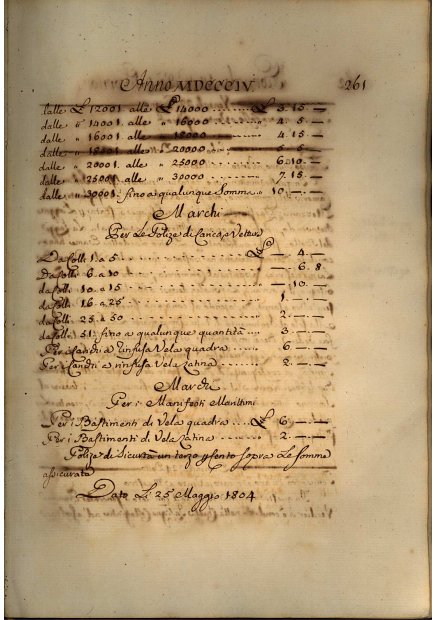 Anno MDCCCIV. 261
dalle £ 12001. alle £ 14000 ......... £ 3. 15. —
dalle " 14001. alle " 16000 ......... " 4. 5. —
dalle " 16001 alle " 18000 ......... 4. 15. —
dalle " 18001. alle " 20000 ......... 5. 5. —
dalle " 20001. alle " 25000 ......... 6. 10. —
dalle " 25001. alle " 30000 ......... 7. 15. —
dalle " 30001. fino a qualunque Somma " 10. — —
Marchi
Per Le Polize di Carico, e Vettura
Da Colli 1 a 5 ......... £ — 4. —
Da Colli 6 a 10 ......... — 6. 8
da Colli 10 a 15 ......... — 10. —
da Colli 16 a 25 ......... 1. — —
da Colli 25 a 50 ......... 2. — —
da Colli 51. fino a qualunque quantità .... 3. — —
Per Carichi a rinfusa Vela quadra .... 6 — —
Per Carichi a rinfusa Vela Latina .... 2. — —
Marchi
Per i Manifesti Marittimi
Per i Bastimenti di Vela quadra ..... £ 6. — —
Per i Bastimenti di Vela Latina ..... 2. — —
Polize di Sicurtà un terzo per cento sopra Le somme
assicurate
Dato Li 25 Maggio 1804